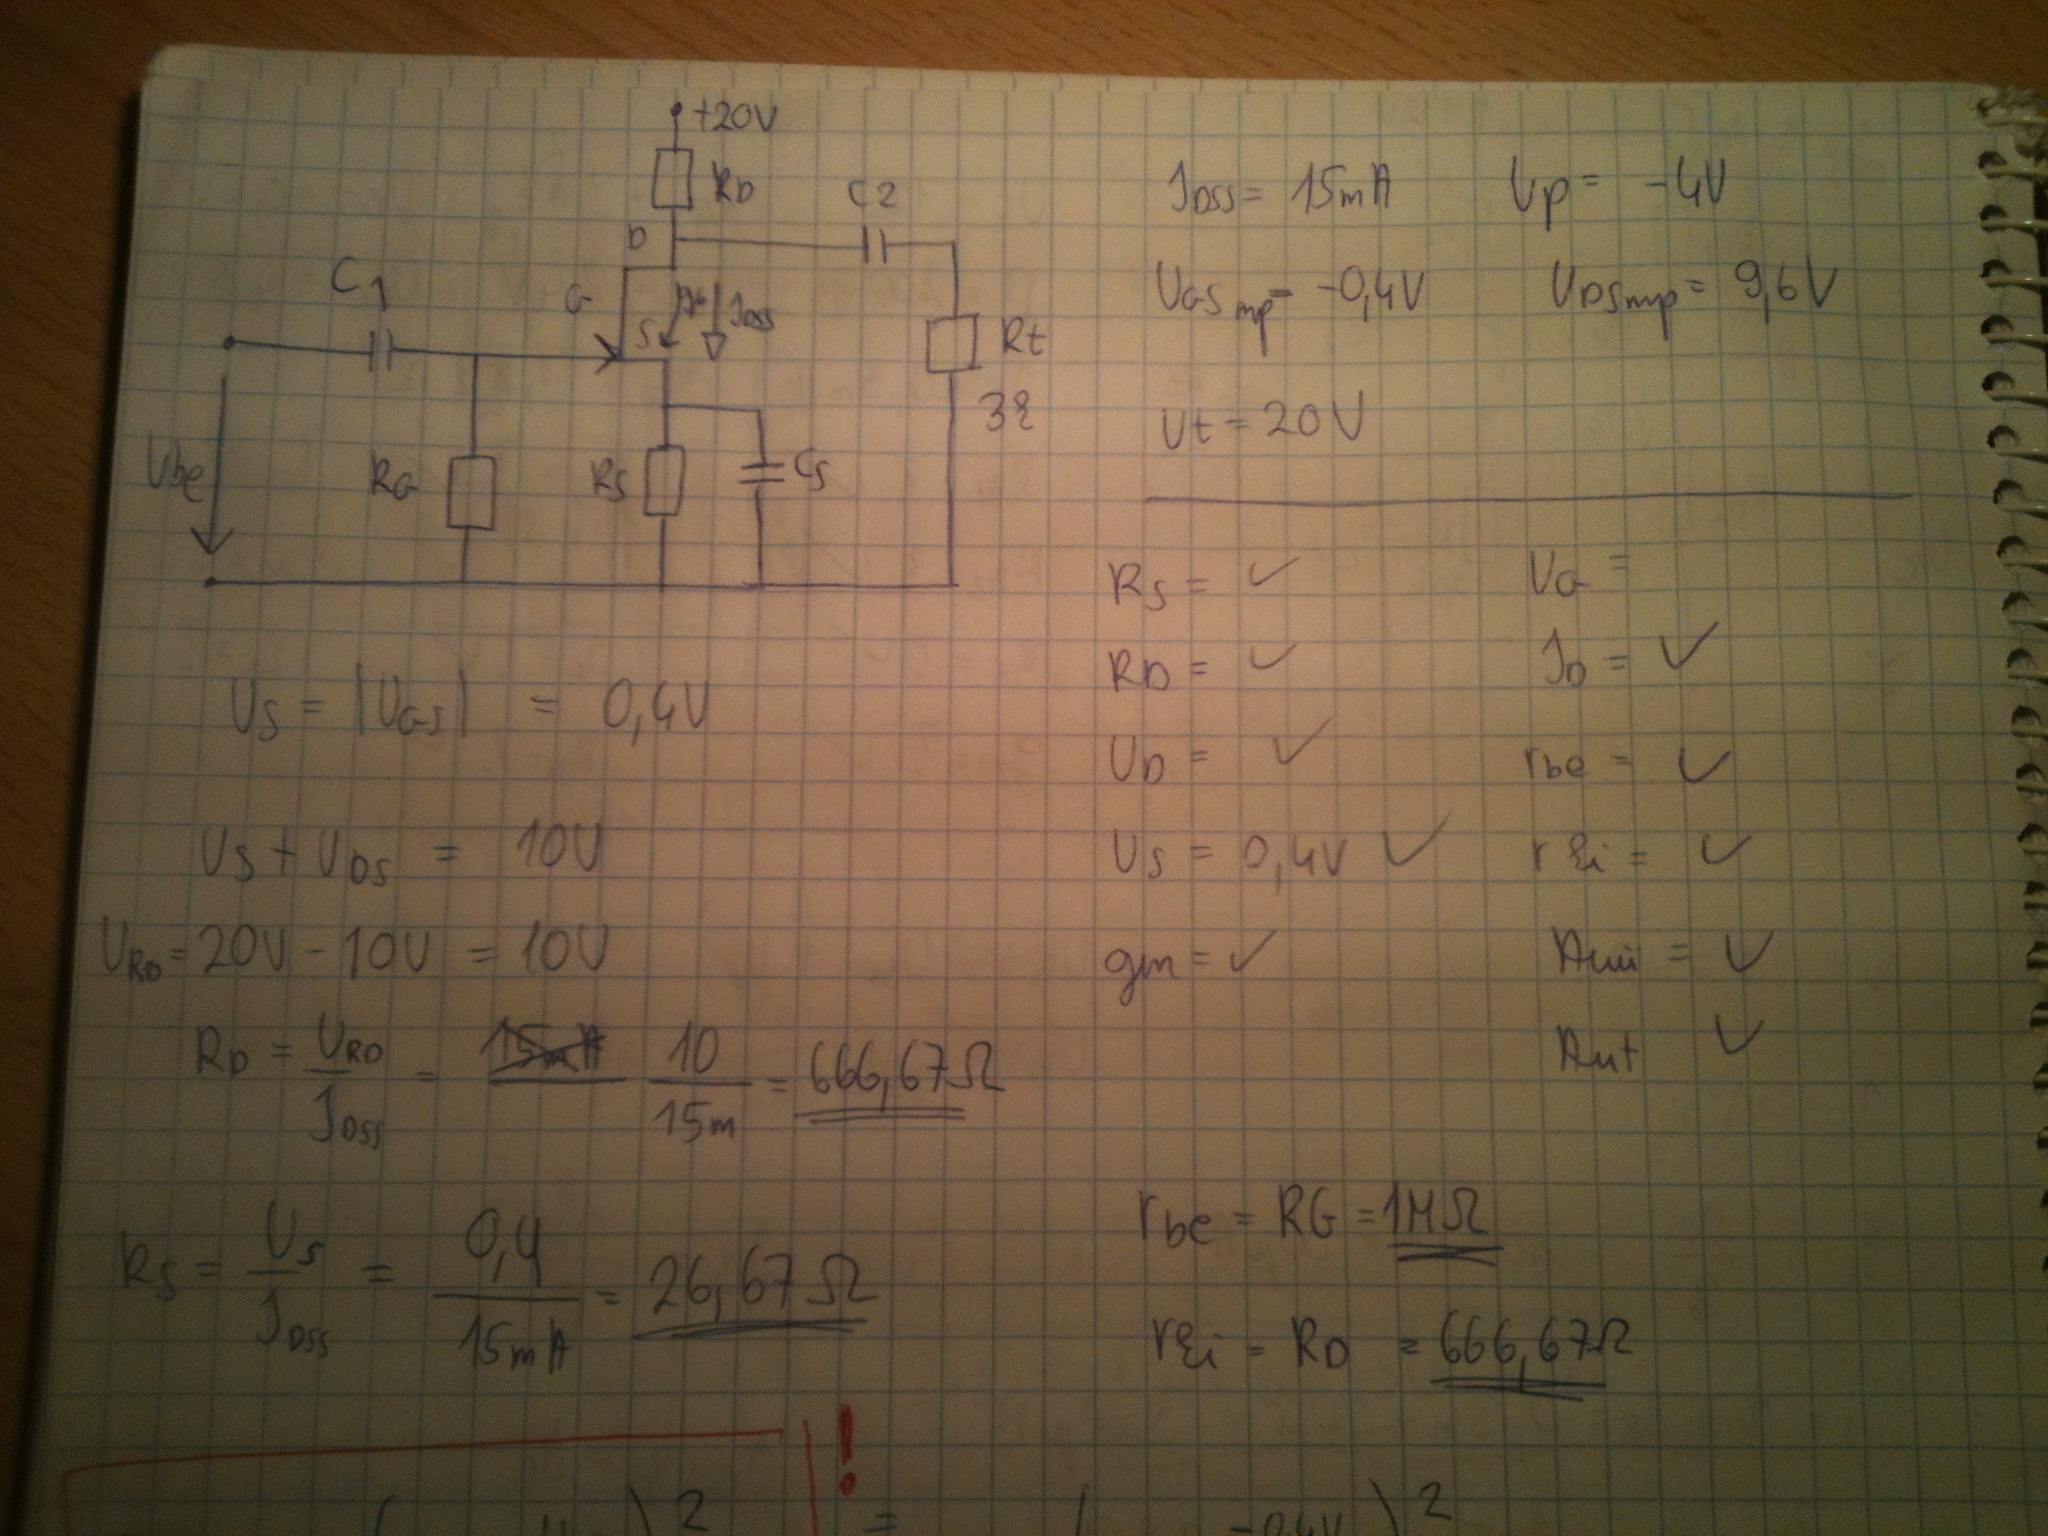 +20V
RD
C2
D
C1
G
S
IDSS
Rt
3k
Ube
RG
RS
CS
IDSS = 15mA UP = -4V
UGSmp = -0,4V UDSmp = 9,6V
Ut = 20V
RS = ✓ UG =
RD = ✓ ID = ✓
UD = ✓ rbe = ✓
US = 0,4V ✓ rki = ✓
gm = ✓ Auü = ✓
Aut ✓
US = |UGS| = 0,4V
US + UDS = 10V
URD = 20V - 10V = 10V
RD = URD / IDSS = 10 / 15m = 666,67Ω
RS = US / IDSS = 0,4 / 15mA = 26,67Ω
rbe = RG = 1MΩ
rki = RD = 666,67Ω
!
( )2 = ( -0,4V )2